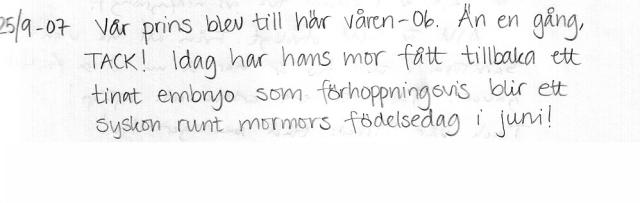 25/9-07 Vår prins blev till här våren-06. Än en gång,
TACK! Idag har hans mor fått tillbaka ett
tinat embryo som förhoppningsvis blir ett
syskon runt mormors födelsedag i juni!